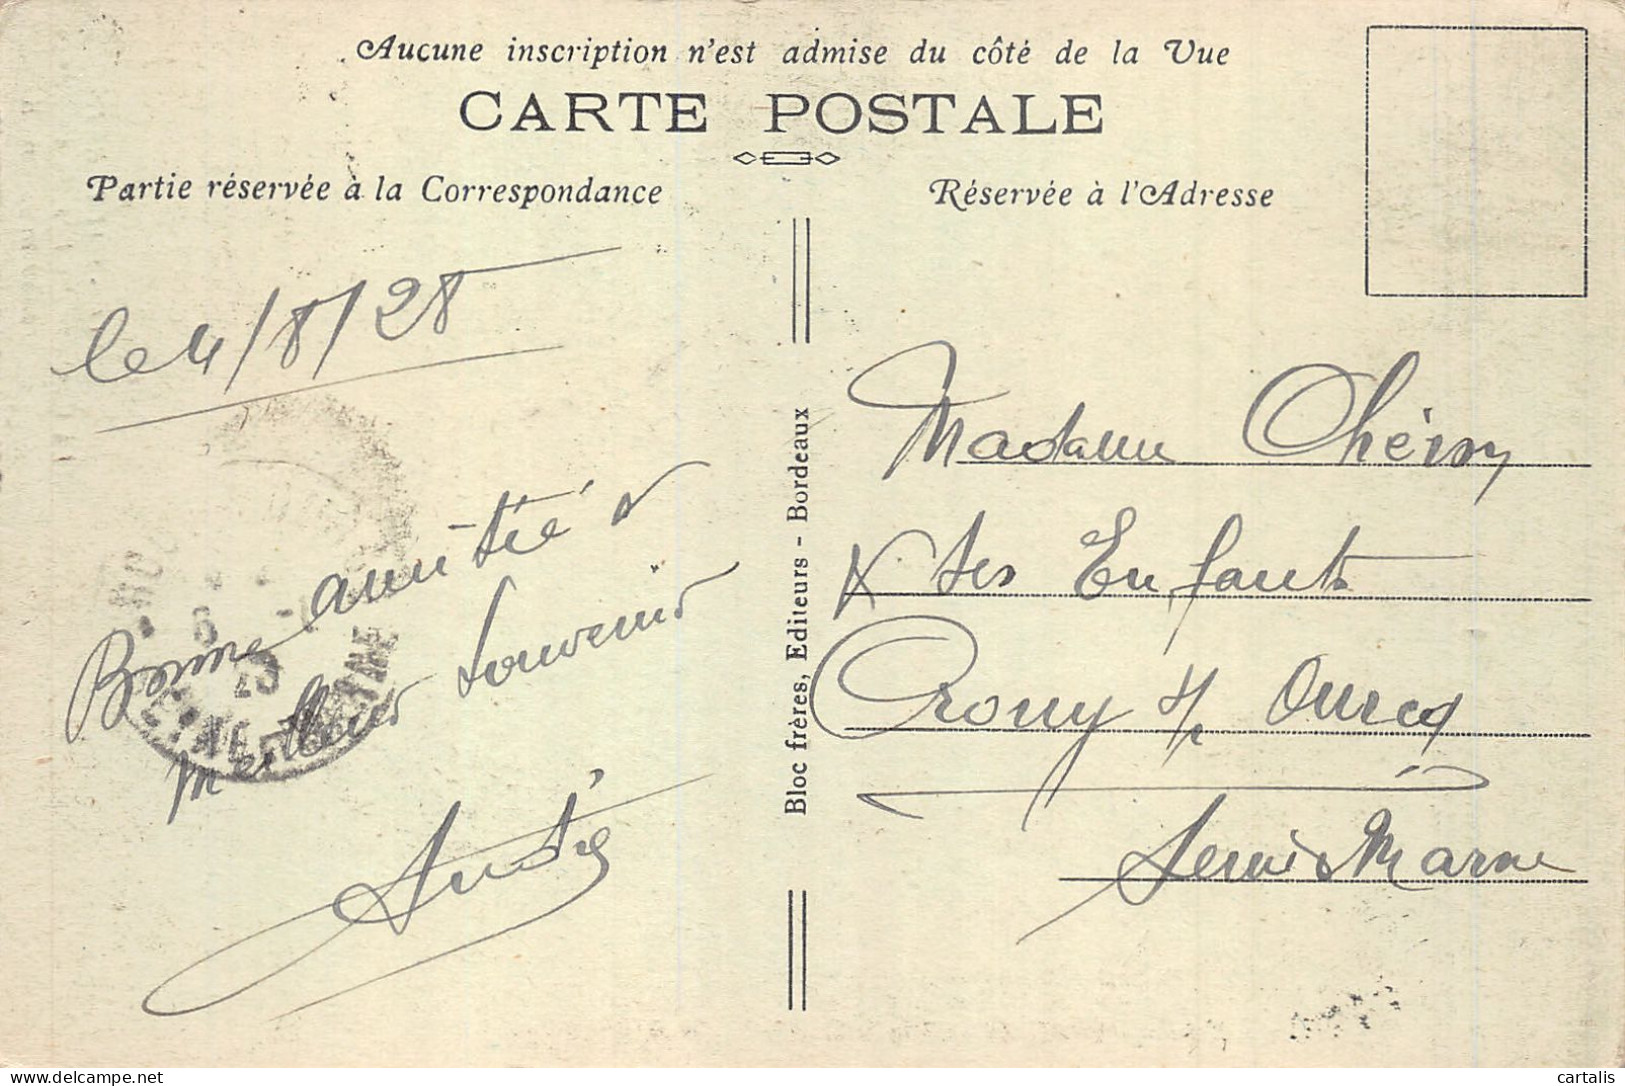 Aucune inscription n'est admise du côté de la Vue
CARTE POSTALE
Partie réservée à la Correspondance
Réservée à l'Adresse
le 4/8/28
Bonne amitié &
Meilleur Souvenir
André
Bloc frères, Editeurs - Bordeaux
Madame Chéron
& ses Enfants
Crouy s/ Ourcq
Seine & Marne
SEINE-ET-MARNE
delcampe.net
cartalis